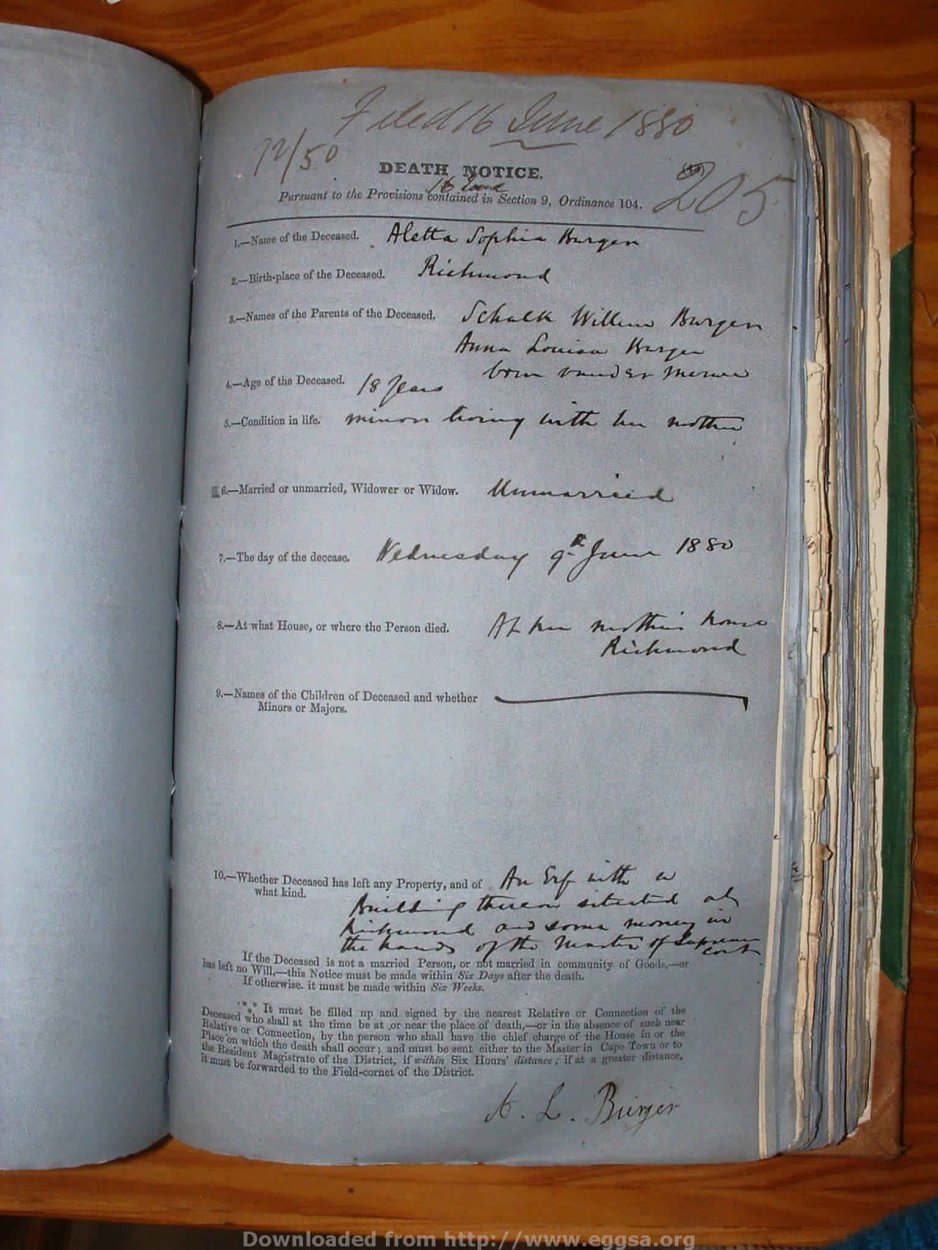 Filed 16 June 1880
12/50
DEATH NOTICE.
16 June
205
Pursuant to the Provisions contained in Section 9, Ordinance 104.
1.—Name of the Deceased. Aletta Sophia Burger
2.—Birth-place of the Deceased. Richmond
3.—Names of the Parents of the Deceased. Schalk Willem Burger
Anna Louisa Burger
born van der Merwe
4.—Age of the Deceased. 18 years
5.—Condition in life. minor living with her mother
6.—Married or unmarried, Widower or Widow. Unmarried
7.—The day of the decease. Wednesday 9th June 1880
8.—At what House, or where the Person died. At her mothers house
Richmond
9.—Names of the Children of Deceased and whether
Minors or Majors.
10.—Whether Deceased has left any Property, and of
what kind. An Erf with a
Building thereon situated at
Richmond and some money in
the hands of the Master of Supreme
Court
If the Deceased is not a married Person, or not married in community of Goods,—or
has left no Will,—this Notice must be made within Six Days after the death.
If otherwise, it must be made within Six Weeks.
*** It must be filled up and signed by the nearest Relative or Connection of the
Deceased who shall at the time be at ,or near the place of death,—or in the absence of such near
Relative or Connection, by the person who shall have the chief charge of the House in or the
Place on which the death shall occur; and must be sent either to the Master in Cape Town or to
the Resident Magistrate of the District, if within Six Hours' distance; if at a greater distance,
it must be forwarded to the Field-cornet of the District.
A. L. Burger
Downloaded from http://www.eggsa.org